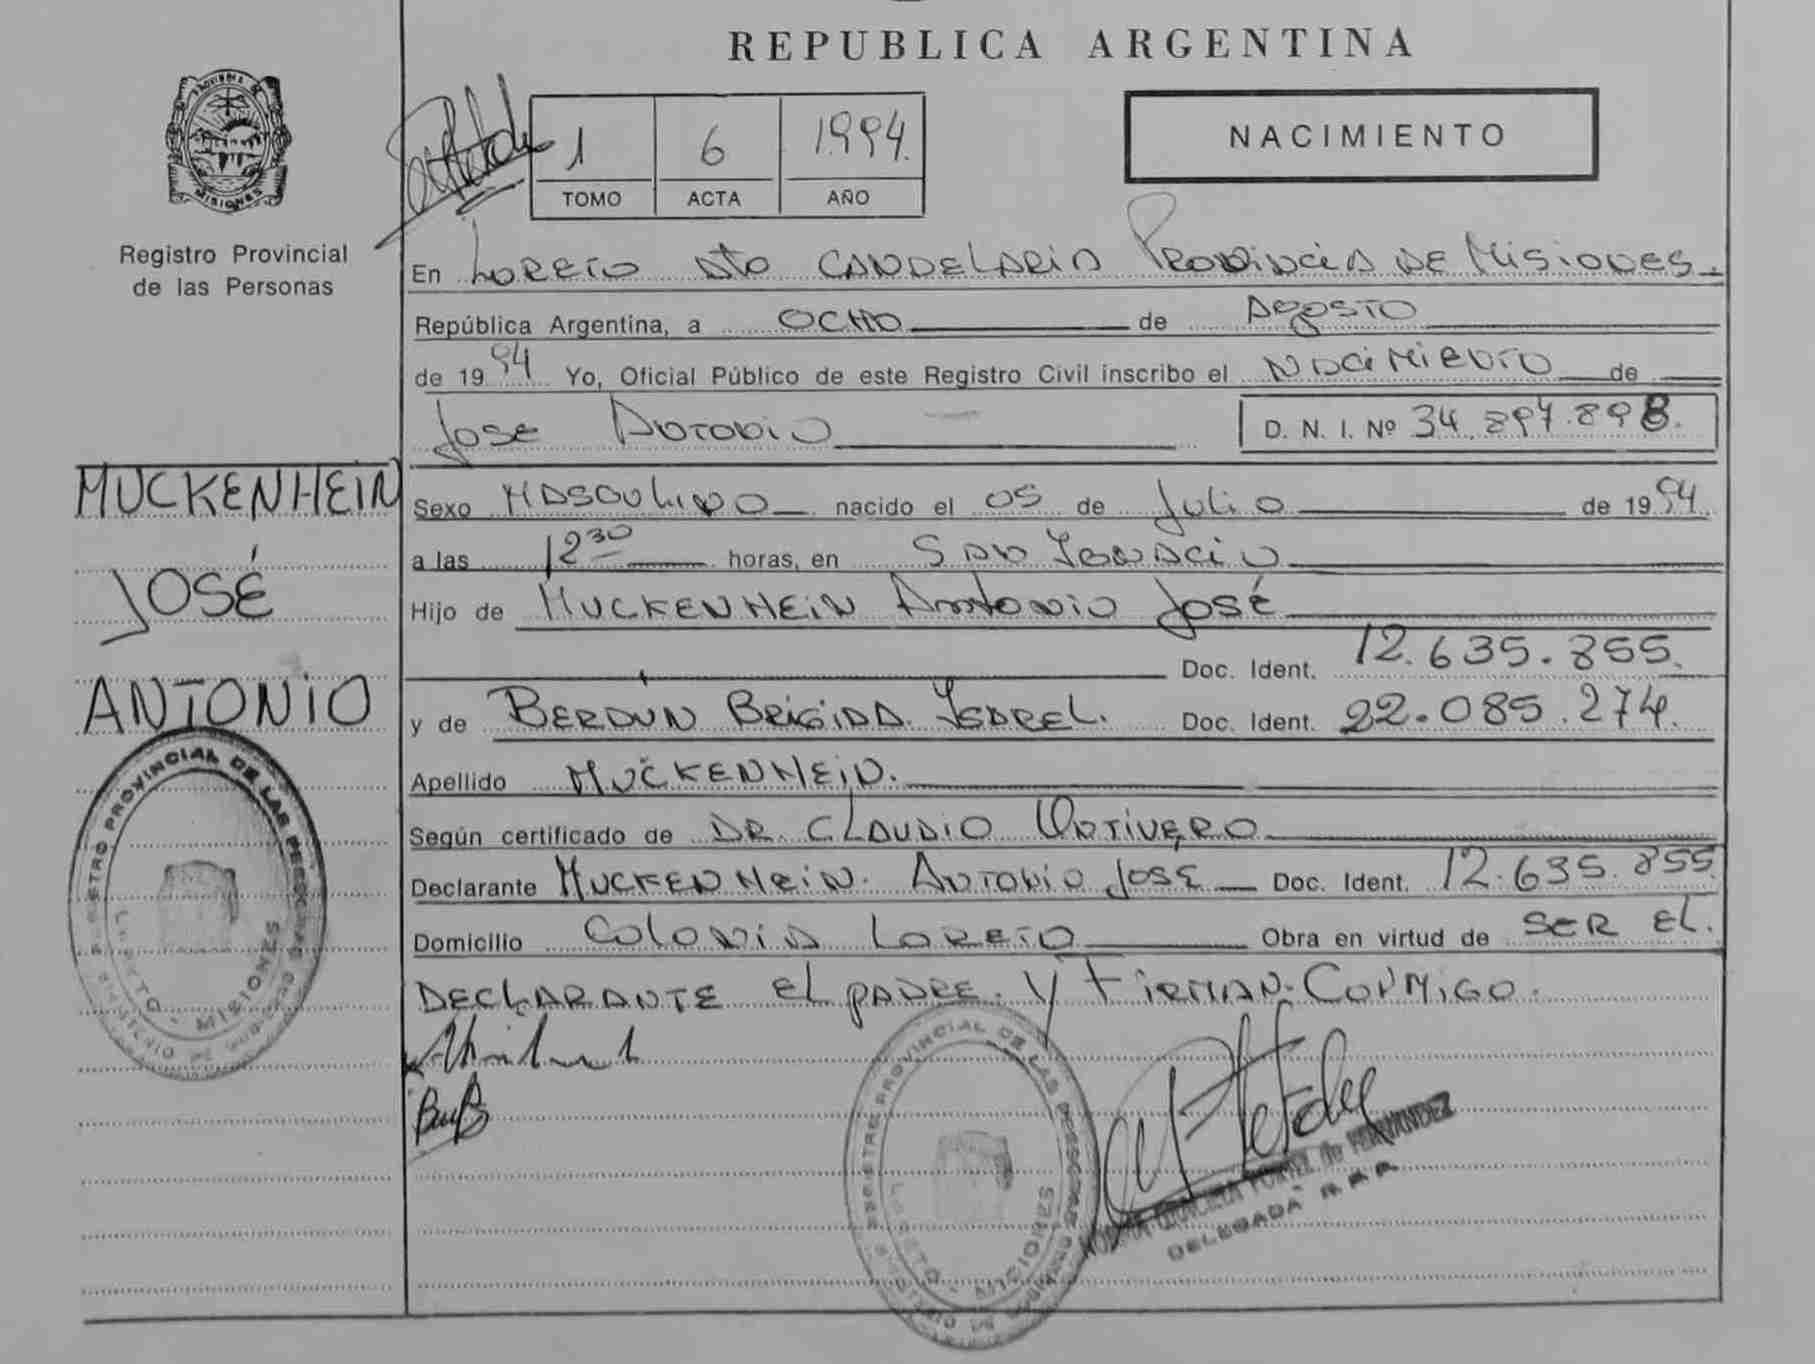 REPUBLICA ARGENTINA
PROVINCIA DE
MISIONES
Registro Provincial
de las Personas
1 6 1994.
TOMO ACTA AÑO
NACIMIENTO
En Loreto Dto CANDELARIA Provincia de Misiones.
República Argentina, a OCHO de Agosto
de 1994 Yo, Oficial Público de este Registro Civil inscribo el Nacimiento de
Jose Antonio D. N. I. Nº 34.897.898.
MUCKENHEIN
JOSÉ
ANTONIO
Sexo Masculino nacido el 05 de Julio de 1994.
a las 12 30 horas, en San Ignacio
Hijo de MUCKENHEIN Antonio José
Doc. Ident. 12.635.855.
y de BERDUN BRIGIDA YSABEL. Doc. Ident. 22.085.274.
Apellido MUCKENHEIN.
Según certificado de DR. CLAUDIO
Declarante MUCKENHEIN. ANTONIO JOSE Doc. Ident. 12.635.855.
Domicilio Colonia Loreto Obra en virtud de SER EL.
DECLARANTE El PADRE. Y FIRMAN. CONMIGO.
REGISTRO PROVINCIAL DE LAS PERSONAS
LORETO - MISIONES
REGISTRO PROVINCIAL DE LAS PERSONAS
LORETO - MISIONES
GRACIELA de FERNANDEZ
DELEGADA